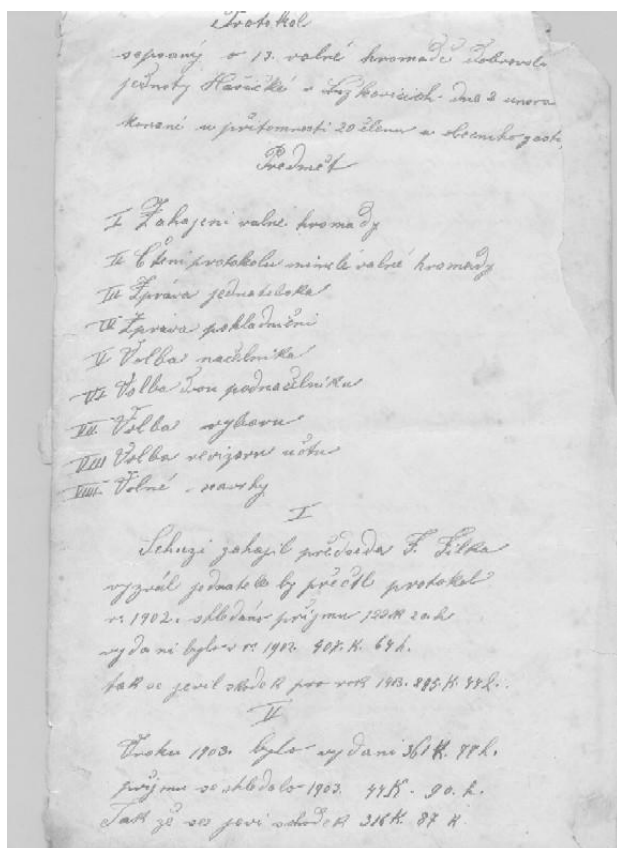 Protokol
sepsaný o 13. valné hromadě dobrovol.
jednoty Hasičské v dne 2 unora
konané u přitomnosti 20 členu a obecniho zast.
Předmět
I Zahajeni valné hromady
II Čteni protokolu minulé valné hromady
III Zpráva jednatelska
IV Zpráva pokladnični
V Volba načelnika
VI Volba dvou podnačelniku
VII Volba vyboru
VIII Volba revizoru učtu
VIIII Volné navrhy
I
Schuzi zahajil předseda F. Filka
vyzval jednatele by přečtl protokol
r. 1902. shledáno přijmu 122 K 20 h
vydani bylo v r. 1902. 408. K. 64 h.
tak se jevil skodek pro rok 1903. K. h.
II
Vroku 1903. bylo vydani 361 K. 77 h.
přijmu se shledalo 1903. 44 K. 90. h.
Tak že ses jevi schodek 316 K. 87 H.